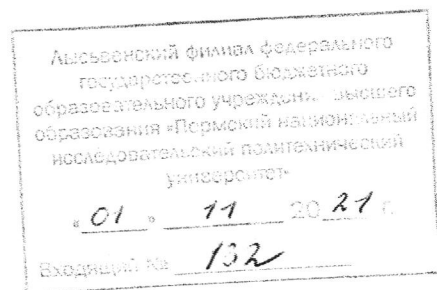 Лысьвенский филиал федерального
государственного бюджетного
образовательного учреждения высшего
образования «Пермский национальный
исследовательский политехнический
университет»
« 01 » 11 20 21 г.
Входящий № 132